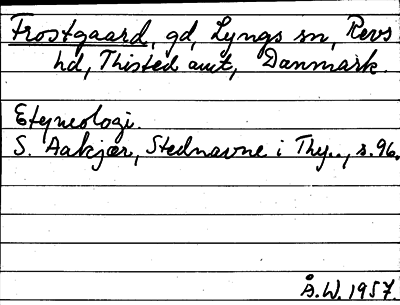 Frostgaard, gd, Lyngs sn, Revs
hd, Thisted amt, Danmark.
Etymologi.
S. Aakjær, Stednavne i Thy.., s. 96.
Å.W. 1957.